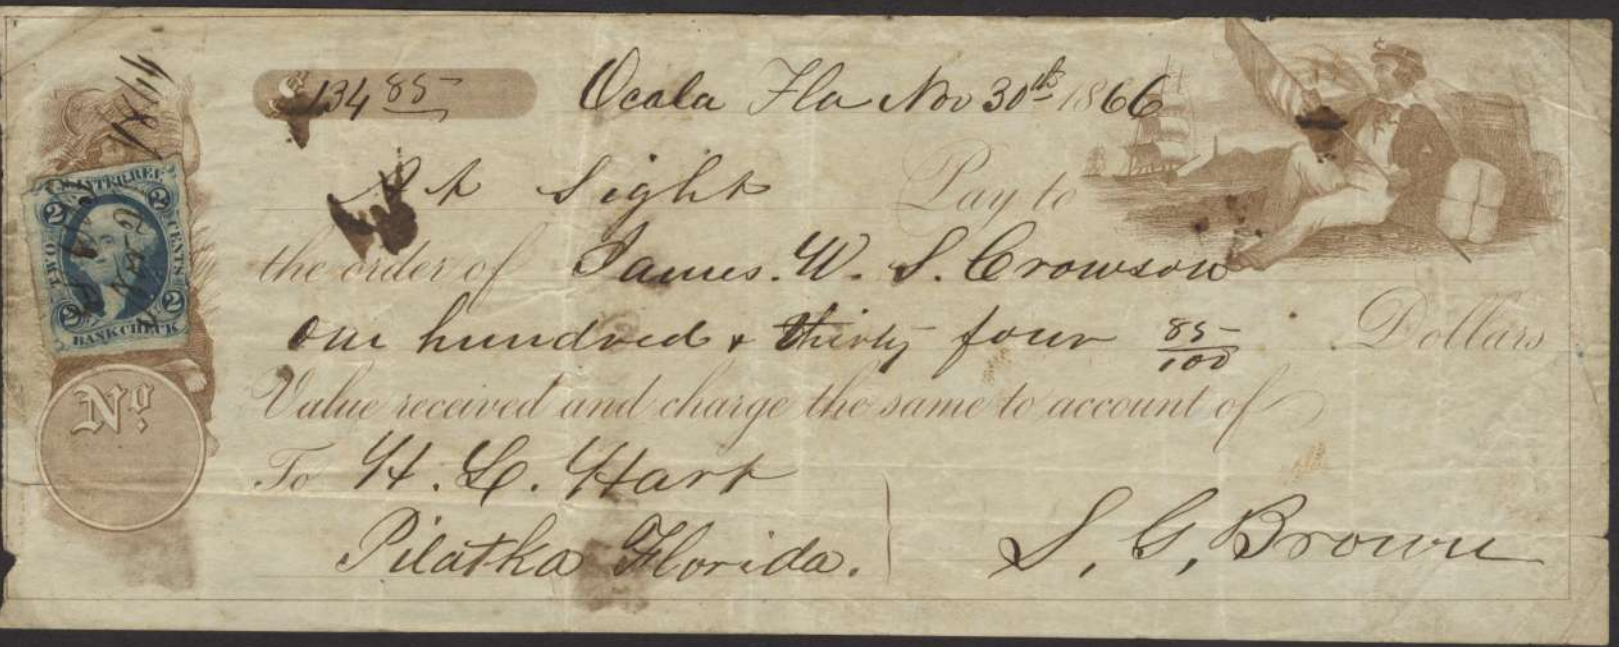 $134 85 Ocala Fla Nov 30th 1866
At Sight Pay to
the order of James. W. S. Crowson
One hundred & thirty four 85/100 Dollars
Value received and charge the same to account of
To H. L. Hart
Pilatka Florida.
S. G. Brown
No.
U.S. INTER. REV.
2 2
TWO CENTS
2 2
BANK CHECK